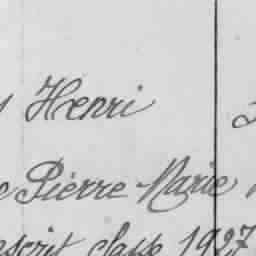 Henri
Pierre Marie
classe 1927